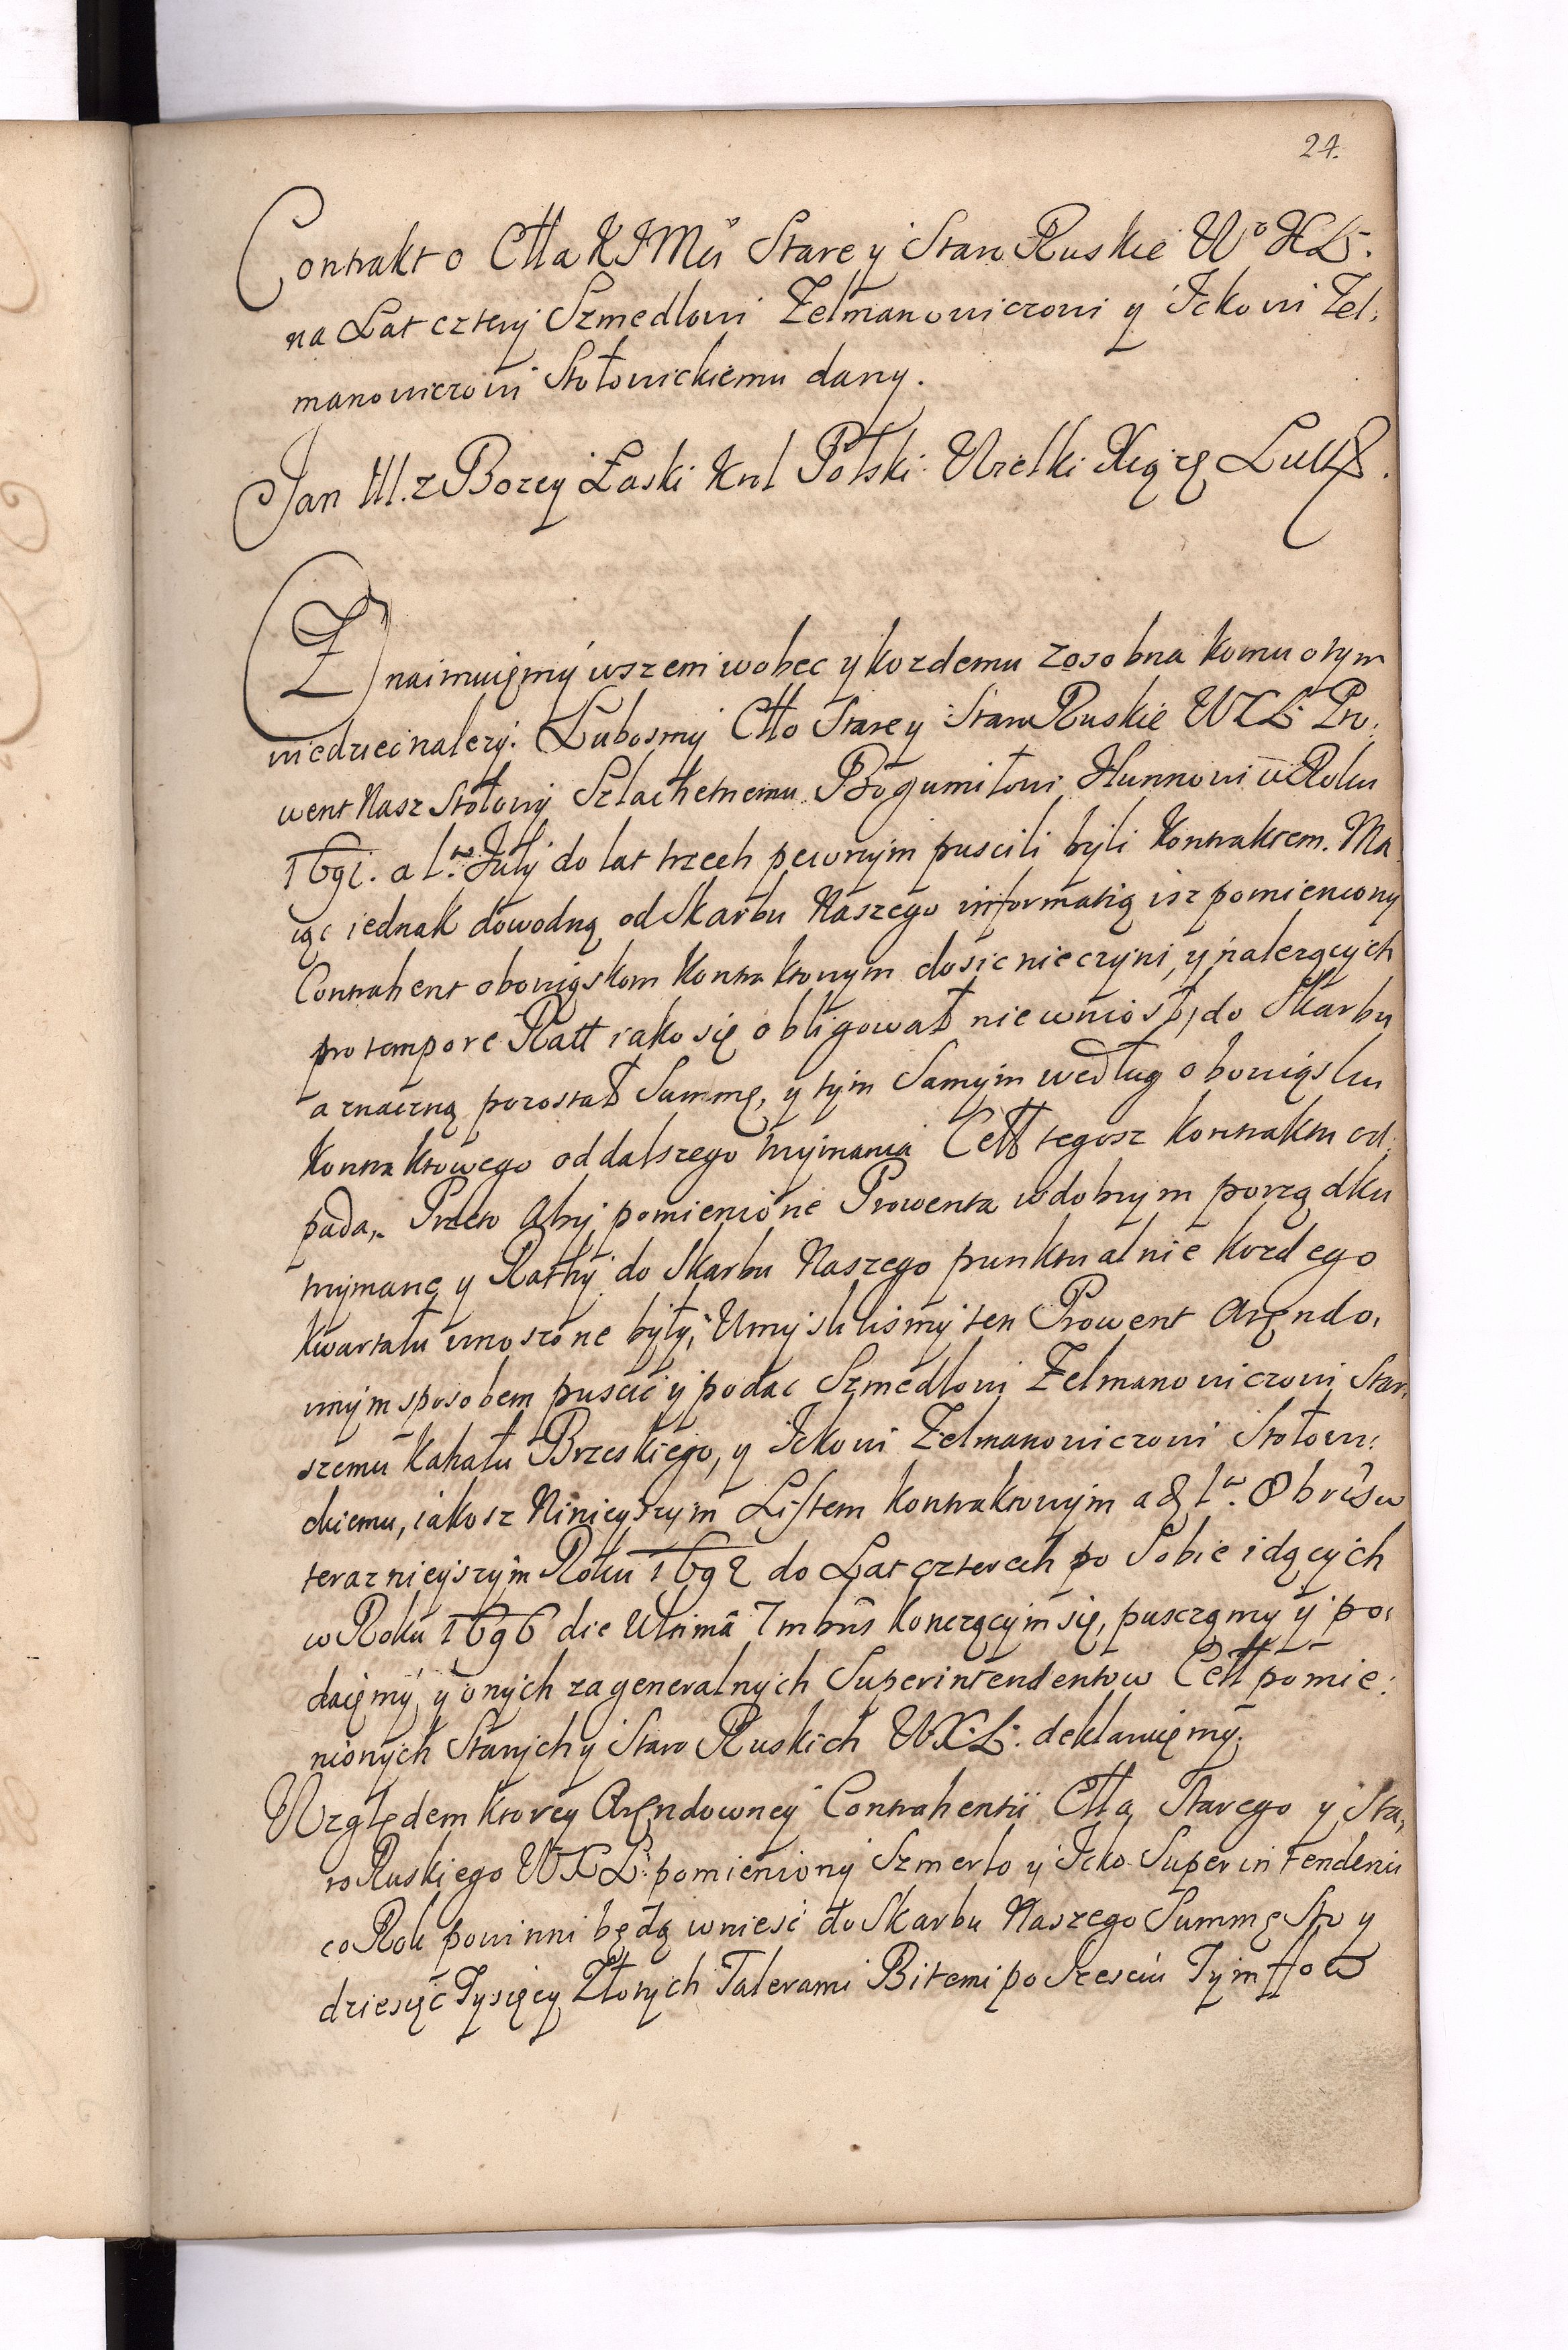 24.
Contrakt o Cłła KJMci Stare y Staro Ruskie Wo XL.
na Lat cztery Szmedlowi Zelmanowiczowi y Ickowi Zel:
manowiczowi Stołowickiemu dany.
Jan III. z Bozey Łaski Krol Polski Wielki Xiązę Litt
Znaimuięmy wszem wobec y kozdemu zosobna komu o tym
wiedziec nalezy. Lubosmy Cło Stare y Staro Ruskie WXL. Pro,
went Nasz Stołowy Szlachetnemu Bogumiłowi Hunnowi w Roku
1691. a 1ma July do lat trzech pewnym puscili byli Kontraktem. Ma
iąc iednak dowodną od Skarbu Naszego informatią isz pomieniony
Contrahent obowiąskom Kontraktowym dosic nie czyni, y nalezących
pro tempore Ratt iako się obligował nie wniosł, do Skarbu
a znaczną pozostał Summę, y tym Samym według obowiąsku
Kontraktowego od dalszego trzymania Cełł tegosz kontraktu od:
pada. Przeto aby pomienione Prowenta w dobrym porządku
trzymane y Rathy do Skarbu Naszego punktualnie kozdego
kwartału wnoszone były, Umyslilismy ten Prowent Aręndo,
wnym sposobem puscic y podac Szmedlowi Zelmanowiczowi Star,
szemu Kahału Brzeskiego, y Ickowi Zelmanowiczowi Stołowi:
ckiemu, iakosz Ninieyszym Listem kontraktowym a d 1a 8bris w
teraznieyszym Roku 1692 do Lat czterech po Sobie idących
w Roku 1696 die Ultima 7mbris konczącym się, puszczamy y po,
daięmy, y onych za generalnych Superintendentow Cełł pomie:
nionych Starych y Staro Ruskich W.X.L. deklaruięmy.
Względem ktorey Aręndowney Contrahentii Cłła Starego y Sta,
ro Ruskiego WXL. pomieniony Szmerło y Icko Superintendenci
co Rok powinni będą wniesć do Skarbu Naszego Summę Sto y
dziesięć Tysięcy Złotych Talerami Bitemi po Szesciu Tymffow